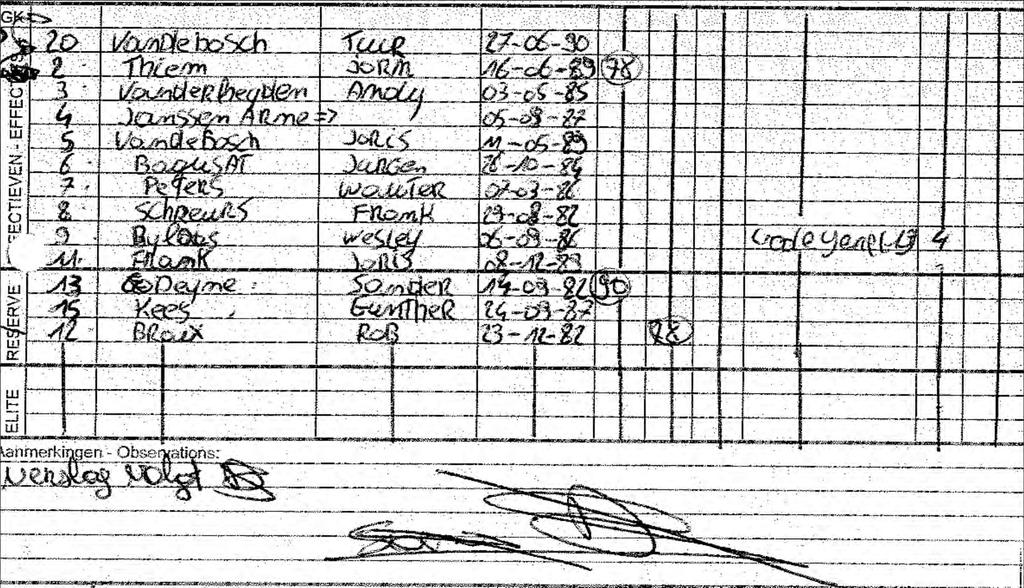 GK
20 Vandebosch Tuur 27-06-90
2 Thiem Jorn 16-06-89 78
3 Vanderheyden Andy 03-05-85
4 Janssen Arne => 05-08-87
5 Vandebosch Joris 11-05-89
6 Bagusat Jurgen 26-10-84
7 Peters Wouter 07-03-86
8 Schreurs Frank 29-08-82
9 Byloos Wesley 06-09-86 4
11 Frank Joris 08-12-89
13 Godeyne Sander 14-09-82 90
15 Kees Gunther 24-09-87
12 Broux Rob 23-12-82 88
EFFECTIEVEN - EFFECT
RESERVE
ELITE
Aanmerkingen - Observations:
Verslag Volgt